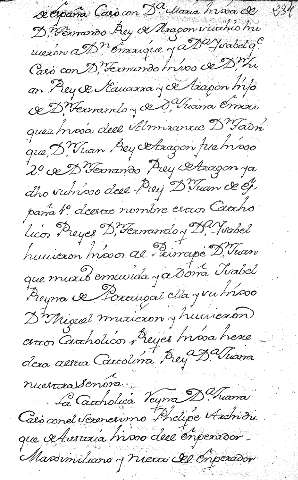 de españa Casó con D.ª Maria hixa de
D.n Fernando Rey de Aragon
D.n Enrrique y a D.ª Isabel q.e
Casó con D.n Fernando hixo de D.n Ju
an Rey de Navarra y de Aragon hijo
de D.n Fernando y de D.ª Juana enrri
quez hixa del Almirante D.n Fadri
que, D.n Juan Rey de Aragon fue hixo
2.º de D.n Fernando Rey de Aragon ya
dho hixo del Rey D.n Juan de es
paña 1.º de este nombre estos Catho
licos Reyes D.n Fernando y D.ª Isabel
huvieron hixos al Principe D.n Juan
que murio en su vida y a Doña Isabel
Reyna de Portugal ella y su hixo
D.n Miguel murieron y huvieron
estos Catholicos Reyes hixa here
dera a esta Catolica Rey.a D.ª Juana
nuestra Señora.
La Catholica Reyna D.ª Juana
Casó con el Serenisimo Phelipe Archidu
que de Austria hixo del Enperador
Maximiliano y nieto del Enperador